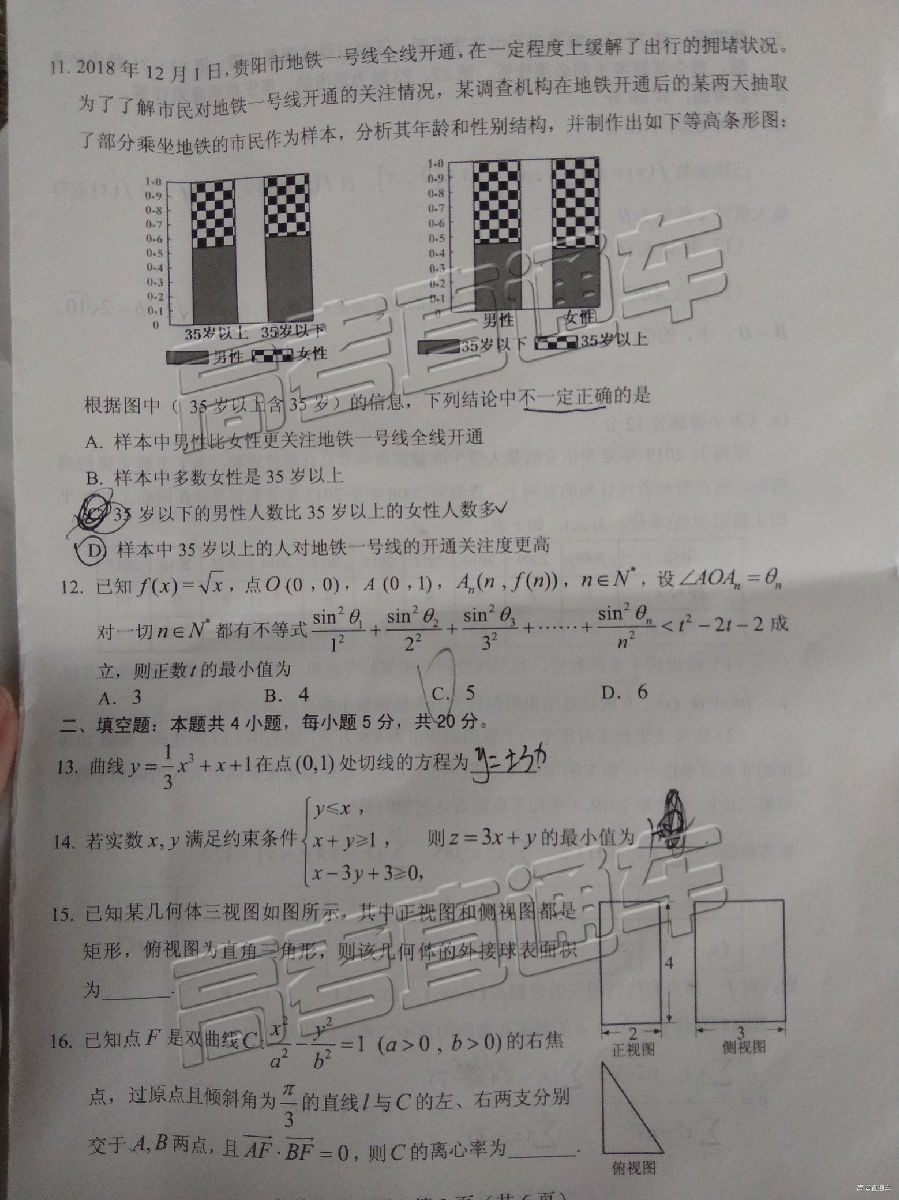 11. 2018 年 12 月 1 日, 贵阳市地铁一号线全线开通, 在一定程度上缓解了出行的拥堵状况。
为了了解市民对地铁一号线开通的关注情况，某调查机构在地铁开通后的某两天抽取
了部分乘坐地铁的市民作为样本，分析其年龄和性别结构，并制作出如下等高条形图：
1.0
0.9
0.8
0.7
0.6
0.5
0.4
0.3
0.2
0.1
0
35岁以上 35岁以下
男性 女性
1.0
0.9
0.8
0.7
0.6
0.5
0.4
0.3
0.2
0.1
0
男性 女性
35岁以下 35岁以上
根据图中（ 35 岁以上含 35 岁）的信息，下列结论中不一定正确的是
A. 样本中男性比女性更关注地铁一号线全线开通
B. 样本中多数女性是 35 岁以上
35 岁以下的男性人数比 35 岁以上的女性人数多✓
D 样本中 35 岁以上的人对地铁一号线的开通关注度更高
12. 已知 f(x)=√x，点 O (0 , 0)，A (0 , 1)，Aₙ(n , f(n))，n∈N*，设 ∠AOAₙ = θₙ
对一切 n∈N* 都有不等式 sin²θ₁/1² + sin²θ₂/2² + sin²θ₃/3² + …… + sin²θₙ/n² < t² − 2t − 2 成
立，则正数 t 的最小值为
A. 3 B. 4 C. 5 D. 6
二、填空题：本题共 4 小题，每小题 5 分，共 20 分。
13. 曲线 y = 1/3 x³ + x + 1 在点 (0,1) 处切线的方程为
14. 若实数 x, y 满足约束条件 { y≤x， x + y≥1， x − 3y + 3≥0, 则 z = 3x + y 的最小值为 .
15. 已知某几何体三视图如图所示，其中正视图和侧视图都是
矩形，俯视图为直角三角形，则该几何体的外接球表面积
为______.
4
2
正视图
3
侧视图
俯视图
16. 已知点 F 是双曲线 C: x²/a² − y²/b² = 1 (a > 0 , b > 0) 的右焦
点，过原点且倾斜角为 π/3 的直线 l 与 C 的左、右两支分别
交于 A, B 两点，且 AF⃗ · BF⃗ = 0，则 C 的离心率为______.
高考直通车
高考直通车